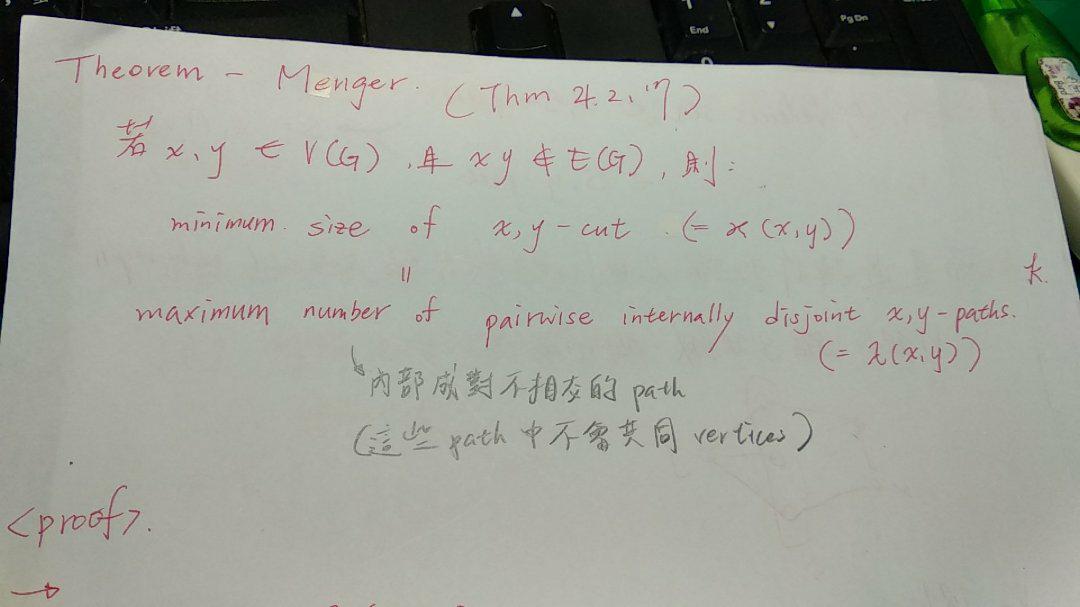 End
PgDn
Theorem - Menger. (Thm 4.2.17)
若 x, y ∈ V(G), 且 xy ∉ E(G), 則:
minimum size of x,y-cut (= κ(x,y))
=
k.
maximum number of pairwise internally disjoint x,y-paths.
(= λ(x,y))
內部成對不相交的 path
(這些 path 中不會共同 vertices)
<proof>.
→